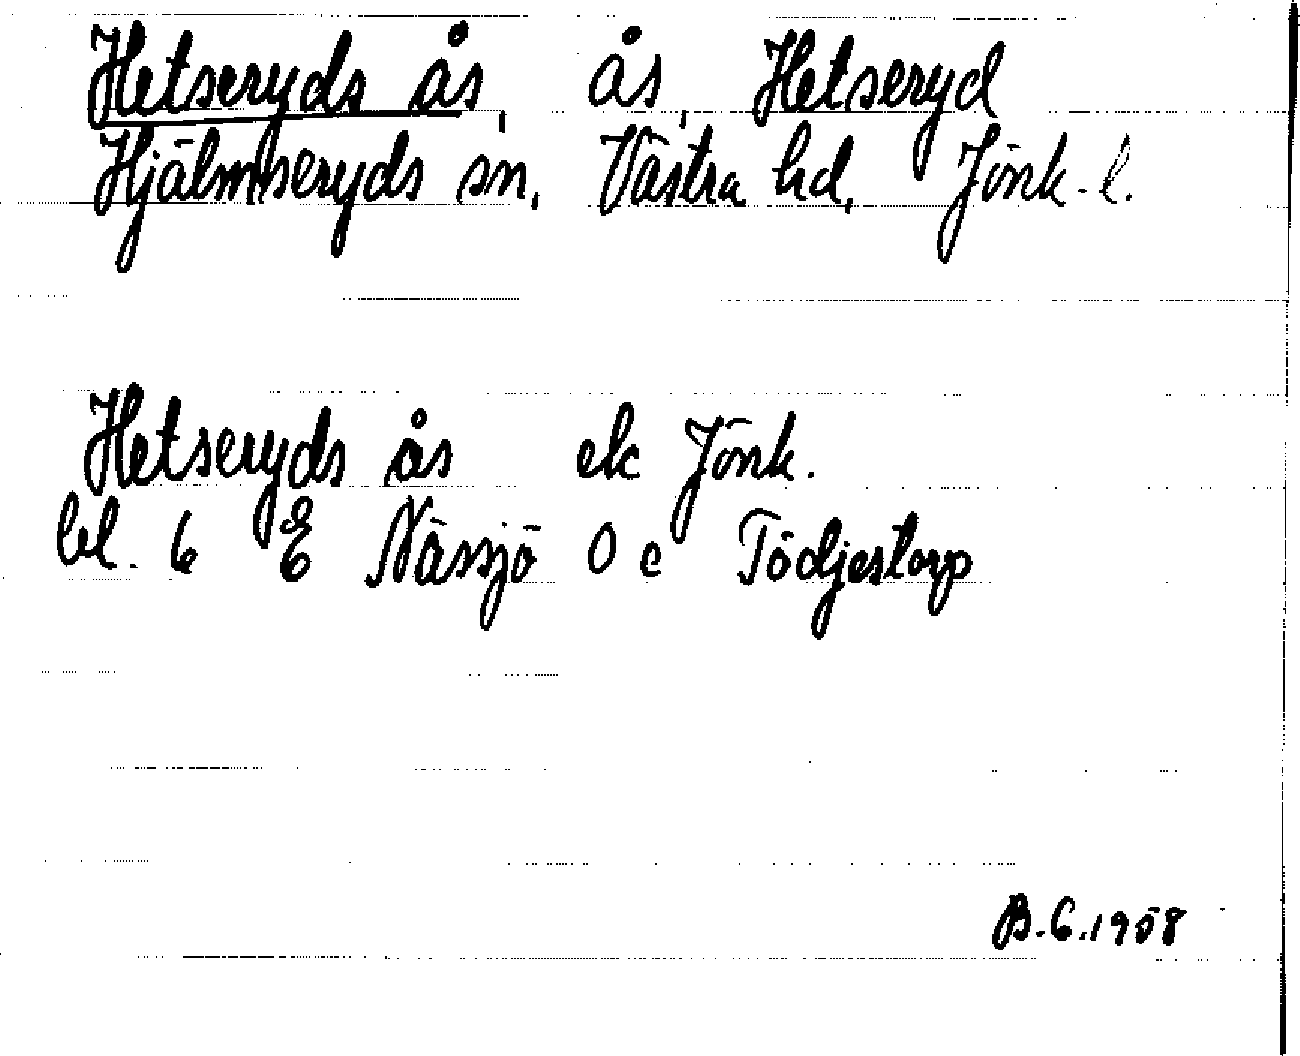 Hetseryds ås, ås, Hetseryd
Hjälmseryds sn, Västra hd, Jönk. l.
Hetseryds ås ek Jönk.
bl. 6 E Nässjö 0 c Tödjestorp
B.G.1958